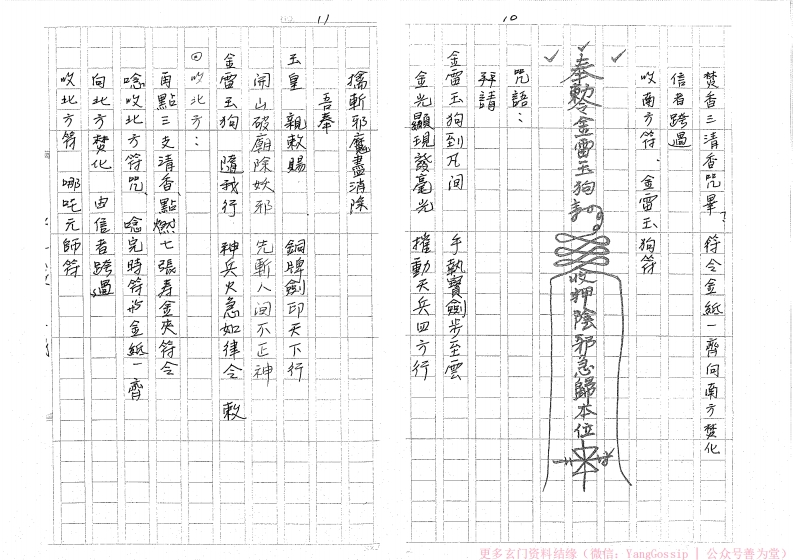 10
焚香三清香咒畢，符令金紙一齊向南方焚化
信者跨過
收南方符、金雷玉狗符
奉勅令金雷玉狗
收押陰邪急歸本位
咒語：
拜請
金雷玉狗到凡间　手執寶劍步至雲
金光顯現發毫光　摧動天兵四方行
11
擒斬邪魔盡消除
吾奉
玉皇　親敕賜　銅牌劍印天下行
開山破廟除妖邪　先斬人间不正神
金雷玉狗　隨我行　神兵火急如律令　敕
⊙收北方：
再點三支清香、點燃七張寿金夾符令
唸收北方符咒、唸完時符令金紙一齊
向北方焚化　由信者跨過
收北方符　哪吒元師符
更多玄门资料结缘（微信：YangGossip | 公众号善为堂）